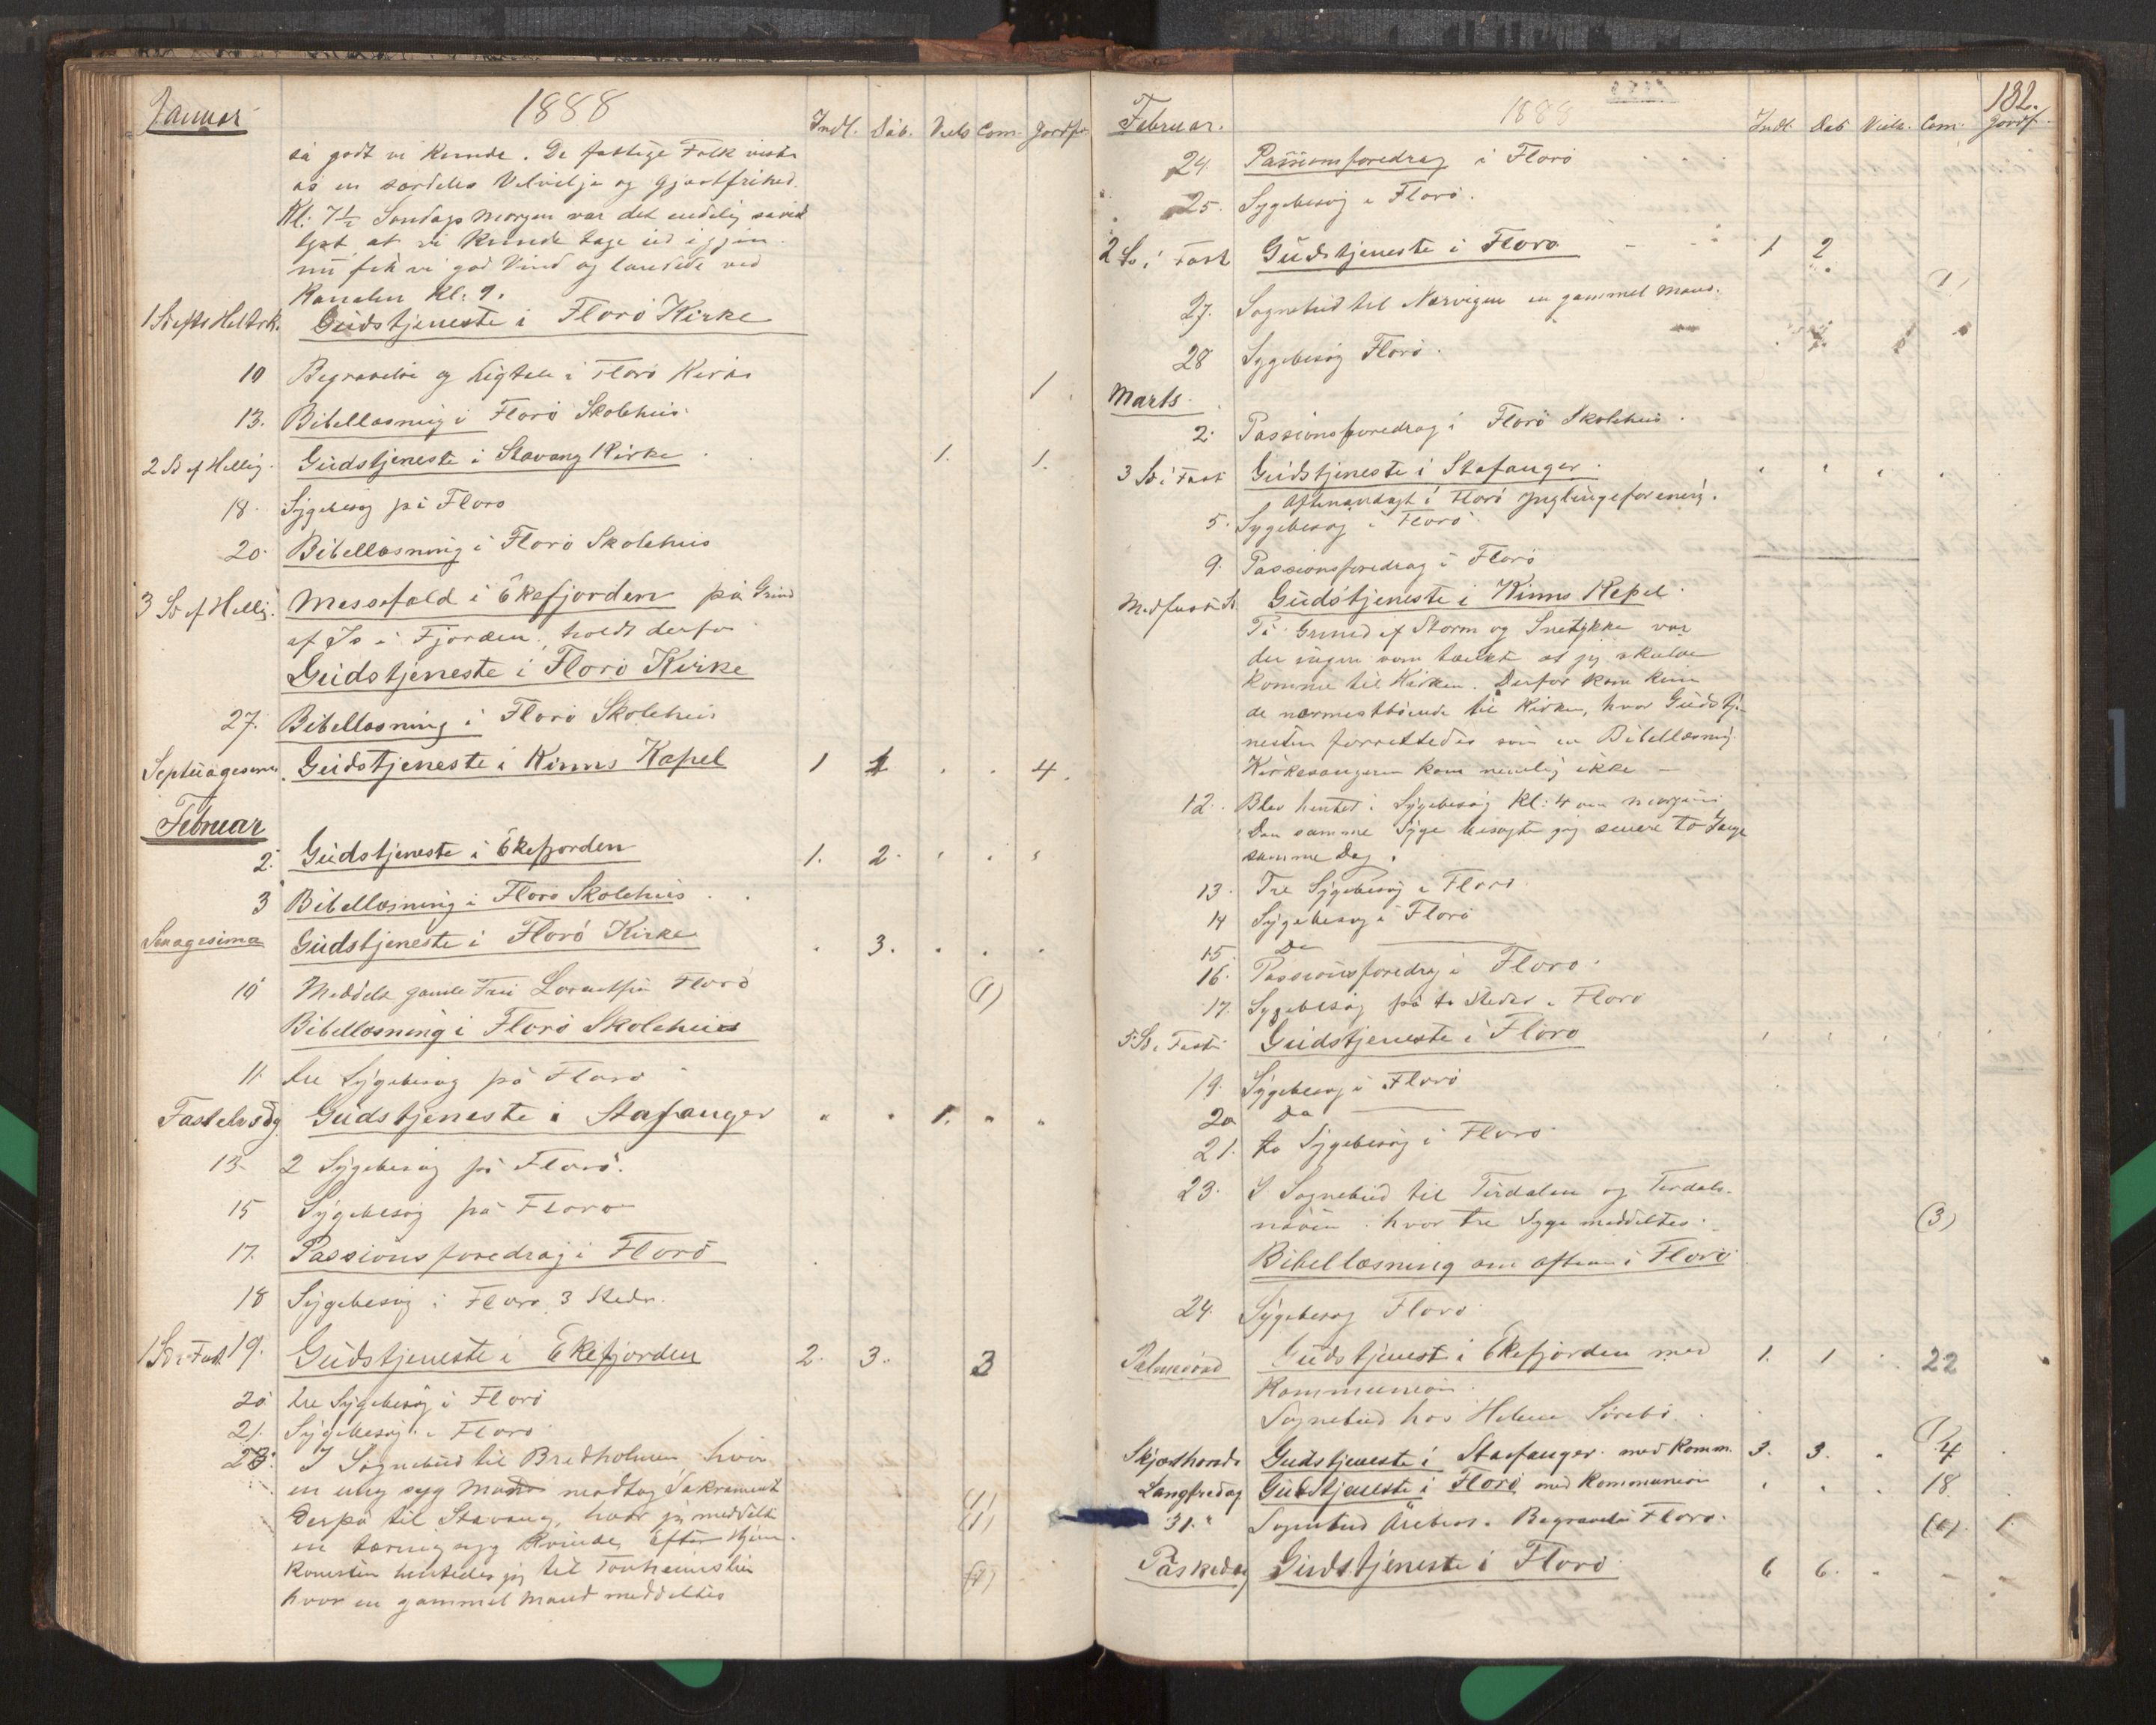 Januar 1888 Indl. Dåb. Viels Com. Jordf.
så godt vi kunde. De fattige Folk viste
os en særdeles Velvilje og Gjæstfrihed.
Kl: 7½ Søndags Morgen var det endelig såvidt
lyst at vi kunde tage ud igjen.
nu fik vi god Vind og landede ved
Kanalen Kl: 9.
1 S efter Heltrk. Gudstjeneste i Florö Kirke
10 Begravelse og Ligtale i Florö Kirke 1
13. Bibellæsning i Florö Skolehus
2 Sd ef Hellig. Gudstjeneste i Stavang Kirke 1. 1.
18. Sygebesøg på Florö
20. Bibellæsning i Florö Skolehus
3 Sd ef Hellig. Messefald i Ekefjorden på Grund
af Is i Fjorden, holdt derfor
Gudstjeneste i Florö Kirke
27. Bibellæsning i Florö Skolehus
Septuagesima. Gudstjeneste i Kinns Kapel 1 1 . . 4.
Februar
2. Gudstjeneste i Ekefjorden 1. 2. . . .
3 Bibellæsning i Florö Skolehus
Sexagesima Gudstjeneste i Florö Kirke . 3. . . .
10 Meddelt gamle Fru Florö (1)
Bibellæsning i Florö Skolehus
11. tre Sygebesøg på Florö
Fastelvsdg Gudstjeneste i Stafanger " . 1. " "
13. 2 Sygebesøg på Florö.
15 Sygebesøg på Florö
17. Passionsforedrag i Florö
18 Sygebesøg i Florö 3 Steder.
1 Sd i Fast. 19. Gudstjeneste i Ekefjorden 2. 3. 3
20. tre Sygebesøg i Florö
21. Sygebesøg i Florö
23. I Sognebud til Bredholmen, hvor
en ung syg Mand modtog Sakrament (1)
Derpå til Stavang, hvor jeg meddelte (1)
en tæringssyg Kvinde, Efter Hjem-
komsten hentedes jeg til (1)
hvor en gammel Mand meddeltes
182.
Februar. 1888 Indl. Dåb Viels. Com. Jordf.
24. Passionsforedrag i Florö
25. Sygebesøg i Florö.
2 Sd i Fast Gudstjeneste i Florö 1 2
27. Sognebud til Norvigen en gammel Mand. (1)
28 Sygebesøg Florö.
Marts.
2. Passionsforedrag i Florö Skolehus.
3 Sd i Fast Gudstjeneste i Stafanger.
Aftenandagt i Florö Ynglingeforening.
5. Sygebesøg i Florö
9. Passionsforedrag i Florö
Midfaste S Gudstjeneste i Kinns Kapel.
På Grund af Storm og Snetykke var
der ingen som tænkte at jeg skulde
komme til Kirken. Derfor kom kun
de nærmestboende til Kirken, hvor Gudstje-
nesten forrettedes som en Bibellæsning.
Kirkesangeren kom nemlig ikke –
12. Blev hentet i Sygebesøg Kl: 4 om morgenen
Den samme Syge besøgte jeg senere to Gange
samme Dag.
13. Tre Sygebesøg i Florö
14 Sygebesøg i Florö
15. Do
16. Passionsforedrag i Florö.
17. Sygebesøg på to Steder i Florö
5 Sd i Faste Gudstjeneste i Florö
19. Sygebesøg i Florö
20 Do
21. to Sygebesøg i Florö
23. I Sognebud til og
hvor tre Syge meddeltes. (3)
Bibellæsning om aftenen i Florö
24. Sygebesøg Florö
Palmesønd Gudstjenest i Ekefjorden med 1. 1 . 22
Kommunion.
Sognebud hos Helene Sörebö. (1)
Skjærthorsd Gudstjeneste i Stafanger. med Komm. 3. 3. . 4
Langfredag Gudstjeneste i Florö med Kommunion . . . 18
31. " Sognebud Begravelse Florö. (1). 1.
Påskedag Gudstjeneste i Florö 6 6.